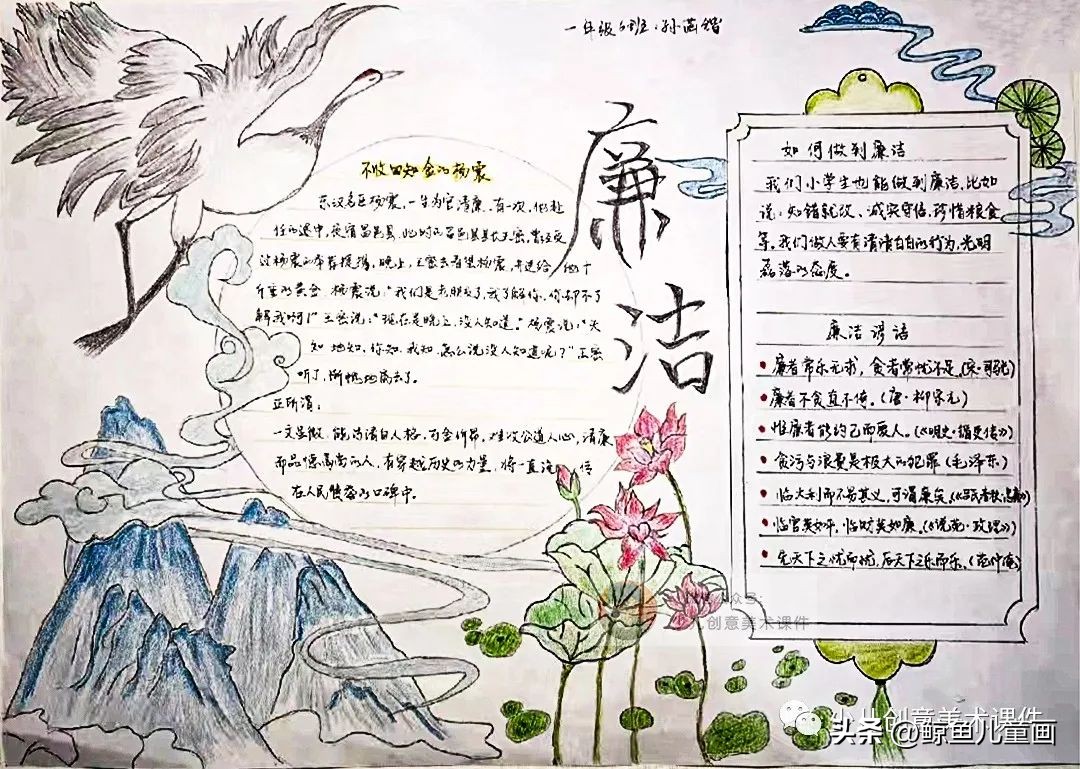 一年级6班:孙
廉
洁
不收四知金的杨震
东汉名臣杨震,一生为官清廉,有一次,他赴
任的途中,夜宿昌邑县,此时的昌邑县县长王密,曾经受
过杨震的举荐提携,晚上,王密去看望杨震,并送给他十
斤重的黄金,杨震说:"我们是老朋友了,我了解你,你却不了
解我啊!"王密说:"现在是晚上,没人知道。"杨震说:"天
知、地知、你知、我知,怎么说没人知道呢?"王密
听了,惭愧地离去了。
正所谓:
一文虽微,能污清白人格,百金所昂,难沒公道人心,清廉
而品德高尚的人,有穿越历史的力量,将一直流传
在人民情感的口碑中。
如何做到廉洁
我们小学生也能做到廉洁,比如
说:知错就改、诚实守信、珍惜粮食
等。我们做人要有清清白白的行为,光明
磊落的态度。
廉洁谚语
廉者常乐无求,贪者常忧不足。(宋·司
廉者不贪直不倚。(唐·柳宗元)
惟廉者能约己而爱人。(《明史·循吏传》)
贪污与浪费是极大的犯罪(毛泽东)
临大利而不易其义,可谓廉矣。(《吕氏春秋·
临官莫如平,临财莫如廉。(《说苑·政理》)
先天下之忧而忧,后天下之乐而乐。(范仲淹)
公众号:
创意美术课件
创意美术课件
头条@鲸鱼儿童画